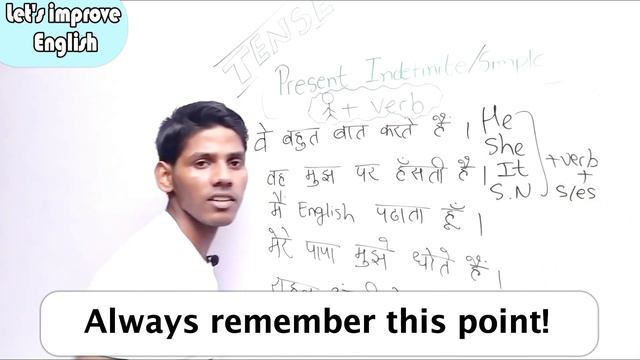 Let's improve
English
TENSE
Present Indefinite/Simple
+ verb
वे बहुत बात करते हैं ।
वह मुझ पर हँसती है ।
मैं English पढाता हूँ ।
मेरे पापा मुझे धोते हैं ।
He
She
It
S.N
+verb
+
s/es
Always remember this point!